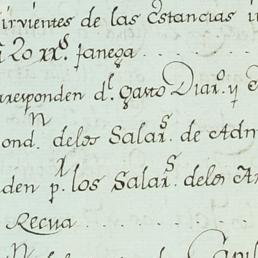 sirvientes de las Estancias
20 rrs. fanega
rresponden dl. Gasto Diaro. y
ond.n delos Salars. de Adm
den pr. los Salars. delos
Recua